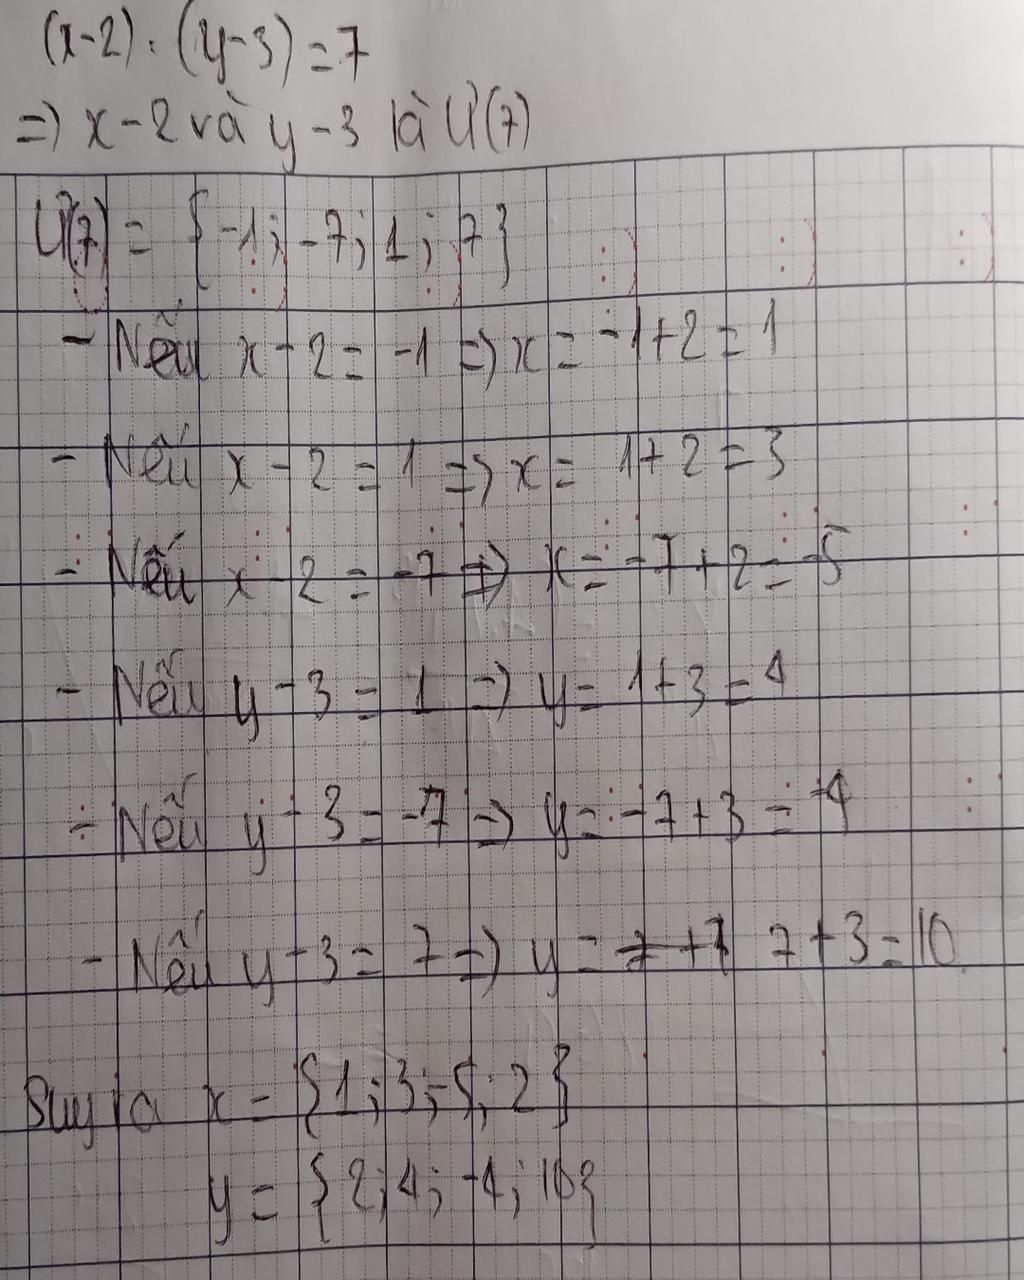 (x-2).(y-3)=7
=> x-2 và y-3 là Ư(7)
Ư(7) = {-1; -7; 1; 7}
- Nếu x-2 = -1 => x = -1+2 = 1
- Nếu x-2 = 1 => x = 1+2 = 3
- Nếu x-2 = -7 => x = -7+2 = -5
- Nếu y-3 = 1 => y = 1+3 = 4
- Nếu y-3 = -7 => y = -7+3 = -4
- Nếu y-3 = 7 => y = 7+3 = 10
Suy ra x = {1; 3; -5; 2}
y = {2; 4; -4; 10}